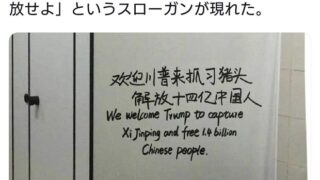 放せよ」というスローガンが現れた。
欢迎川普来抓习猪头
解放十四亿中国人
We welcome Trump to capture
Xi Jinping and free 1.4 billion
Chinese people.